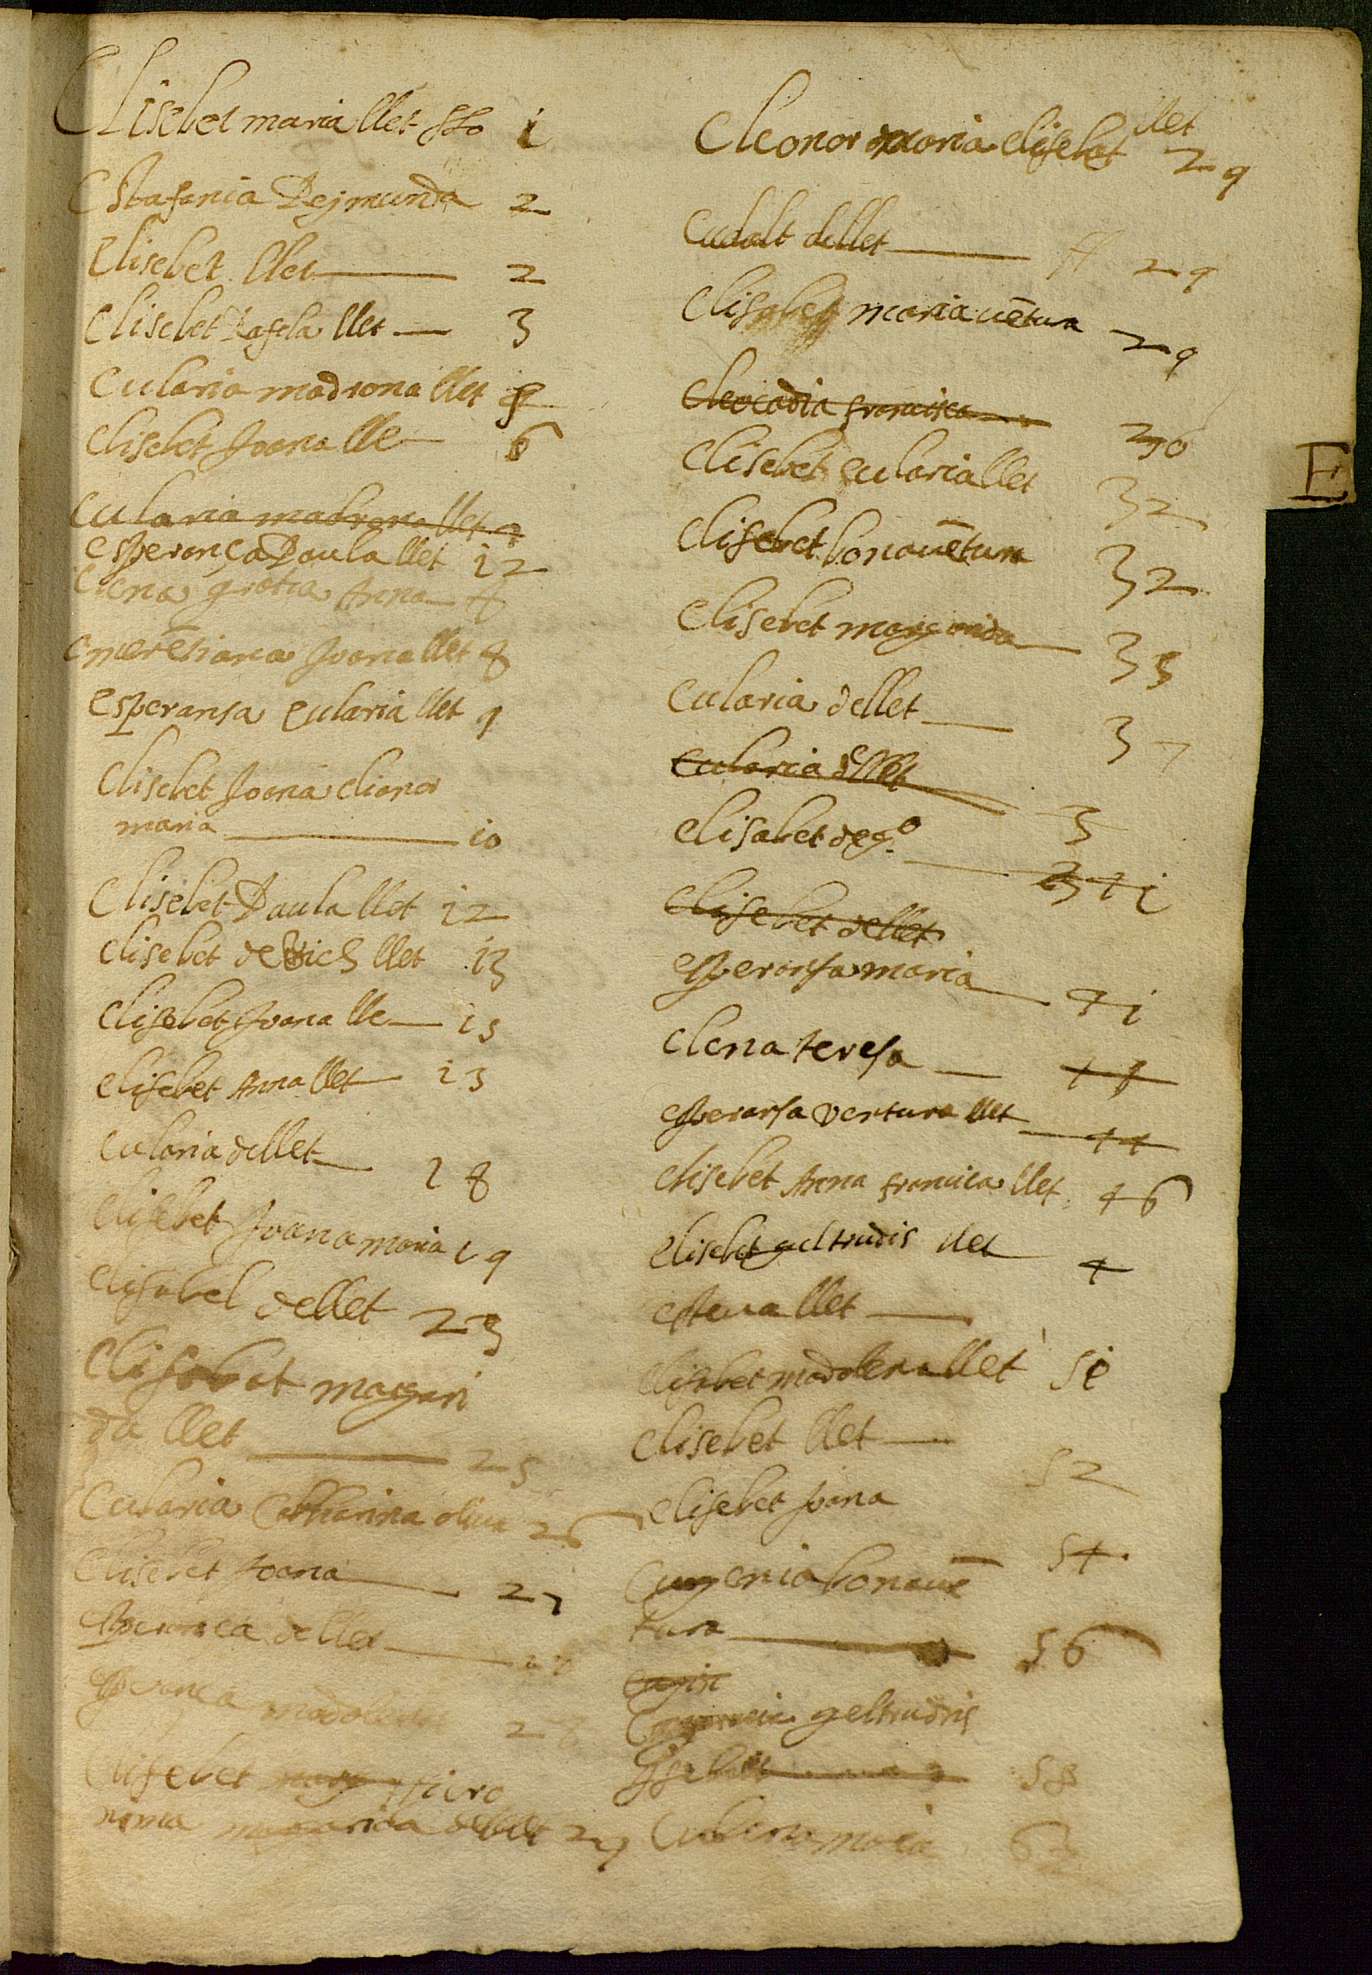 Elisebet maria llet ffo 1
Estafania Rejmunda 2
Elisebet llet 2
Elisebet Rafela llet 3
Eularia madrona llet
Elisebet Joana lle 6
Eularia madrona llet 7
esperença Paula llet 12
Elena gratia Anna
Emerētiana Joana llet 8
esperansa eularia llet 9
Elisebet Joana elionor
maria 10
Elisebet Paula llet 12
Elisebet de Vich llet 13
Elisebet Joana lle 13
elisebet Anna llet 13
Eularia de llet 18
Elisebet Joana maria 19
elisabet de llet 23
Elisabet magari
da llet 25
Eularia Catharina oliva 26
Elisebet Joana 27
esperança de llet
esperança madalena 28
Elisebet
nima de llet 29
llet
Eleonor maria elisebet 29
Eudalt de llet 29
Elisabet maria vētura 29
Eleocadia francisca 296
Elisebet eularia llet 32
Elisebet bonavētura 32
Elisebet margarida 35
Eularia de llet 37
Eularia de llet 3
elisabet de go 41
Elisebet de llet
esperansa maria 41
Elena teresa 44
esperansa ventura llet 44
elisebet Anna francisca llet 46
elisebet geltrudis llet 4
esteva llet
Elisabet madalena llet 51
elisebet llet 52
elisebet Joana 54
Eugenia bonavē
tura 56
Eugenia geltrudis
58
maria 63
E